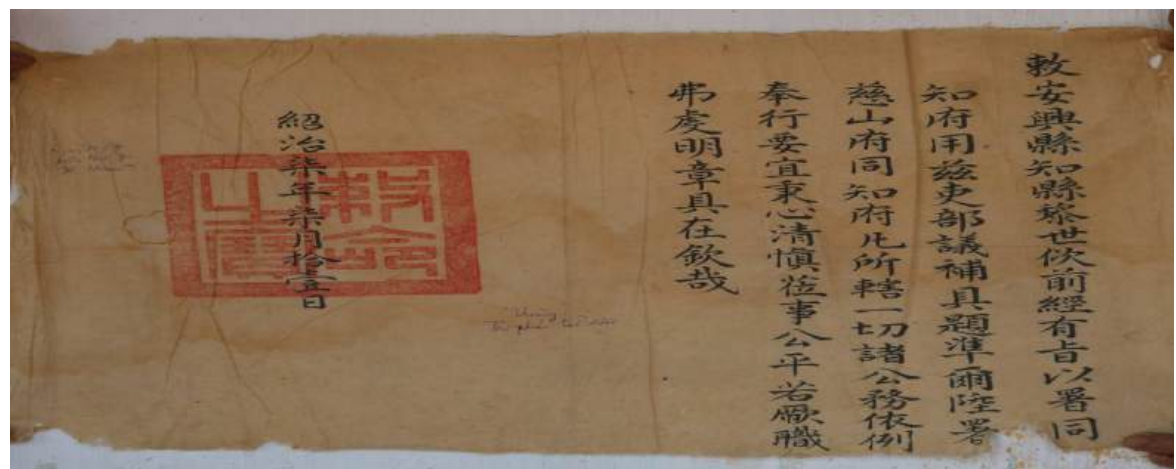 敕安興縣知縣黎世佽前經有旨以署同
知府用茲吏部議補具題準爾陞署
慈山府同知府凡所轄一切諸公務依例
奉行要宜秉心清慎蒞事公平若厥職
弗虔明章具在欽哉
紹治柒年柒月拾壹日
敕命之寶